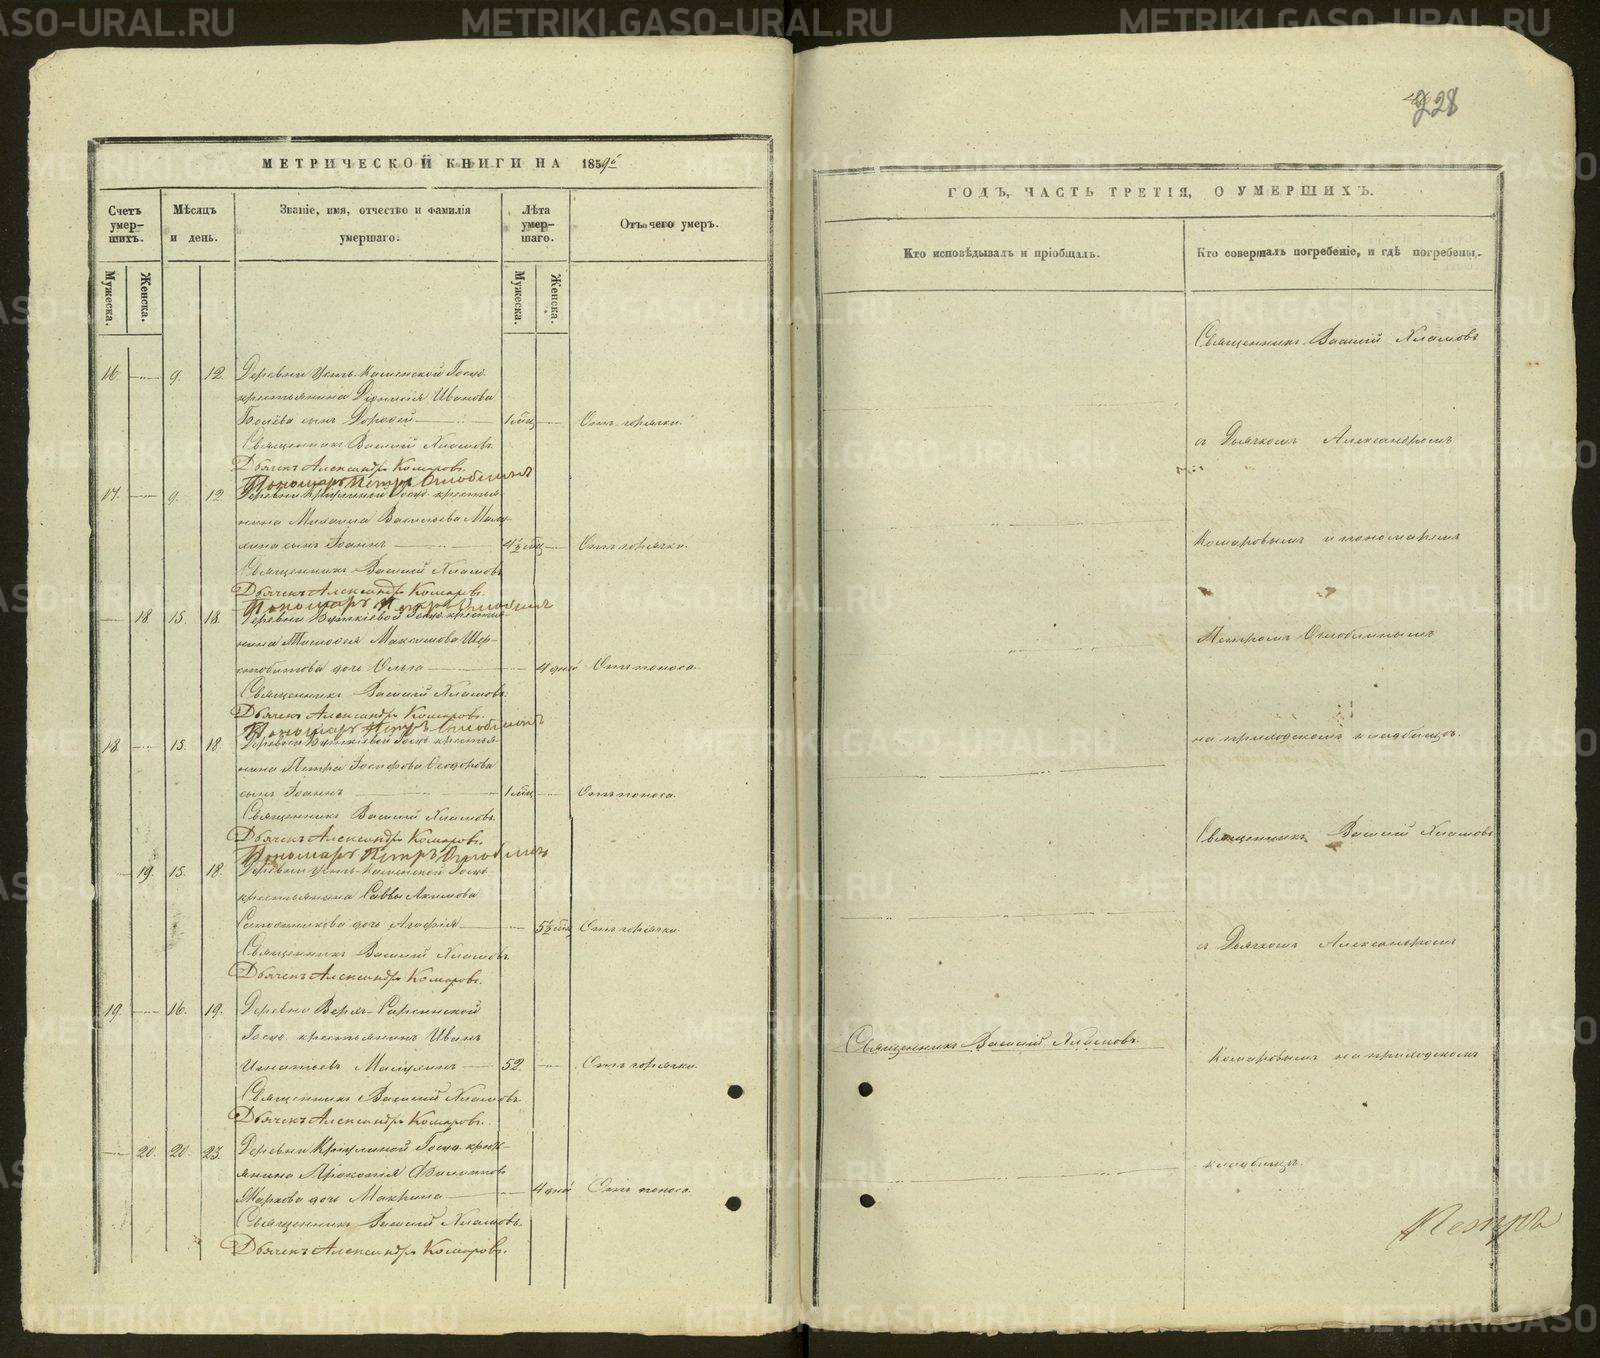 МЕТРИЧЕСКОЙ КНИГИ НА 1859й
Счетъ умер-шихъ.
Мѣсяцъ и день.
Званіе, имя, отчество и фамилія умершаго.
Лѣта умер-шаго.
Отъ чего умеръ.
Мужеска.
Женска.
Мужеска.
Женска.
16. 9. 12. Деревни Усть-Каменской Госуд.
крестьянина Иванова
сынъ Дороѳей 1 мѣц Отъ горячки.
Священникъ Василій Хламовъ
Дьячекъ Александръ Комаровъ.
Пономарь Петръ Оглоблинъ
17. 9. 12 Деревни Крулиной Госуд. крестья-
нина Михаила Васильева Малы-
гина сынъ Іоаннъ 4½ мѣц Отъ горячки.
Священникъ Василій Хламовъ
Дьячекъ Александръ Комаровъ.
Пономарь Петръ Оглоблинъ
18. 15. 18. Деревни Госуд. крестья-
нина Максимова Шер-
стобитова дочь Ольга 4 дней Отъ поноса.
Священникъ Василій Хламовъ.
Дьячекъ Александръ Комаровъ.
Пономарь Петръ Оглоблинъ
18. 15. 18. Деревни Госуд. крестья-
нина Петра Ѳеодорова
сынъ Іоаннъ 1 мѣц Отъ поноса.
Священникъ Василій Хламовъ
Дьячекъ Александръ Комаровъ.
Пономарь Петръ Оглоблинъ
19. 15. 18. Деревни Усть-Каменской Госуд.
крестьянина Саввы Акимова
дочь Агафія 5½ мѣц Отъ горячки.
Священникъ Василій Хламовъ.
Дьячекъ Александръ Комаровъ.
19. 16. 19. Деревни
Госуд. крестьянинъ Иванъ
Игнатьевъ 52. Отъ горячки.
Священникъ Василій Хламовъ
Дьячекъ Александръ Комаровъ.
20. 20. 23. Деревни Крулиной Госуд. крест-
янина Прокопія Филиппова
Маркова дочь Макрина 4 дней Отъ поноса.
Священникъ Василій Хламовъ.
Дьячекъ Александръ Комаровъ.
228
ГОДЪ, ЧАСТЬ ТРЕТІЯ, О УМЕРШИХЪ.
Кто исповѣдывалъ и пріобщалъ.
Кто совершалъ погребеніе, и гдѣ погребены.
Священникъ Василій Хламовъ
съ Дьячкомъ Александромъ
Комаровымъ и пономаремъ
Петромъ Оглоблинымъ
на приходскомъ кладбищѣ.
Священникъ Василій Хламовъ
съ Дьячкомъ Александромъ
Священникъ Василій Хламовъ.
Комаровымъ на приходскомъ
кладбищѣ.
Петръ
METRIKI.GASO-URAL.RU